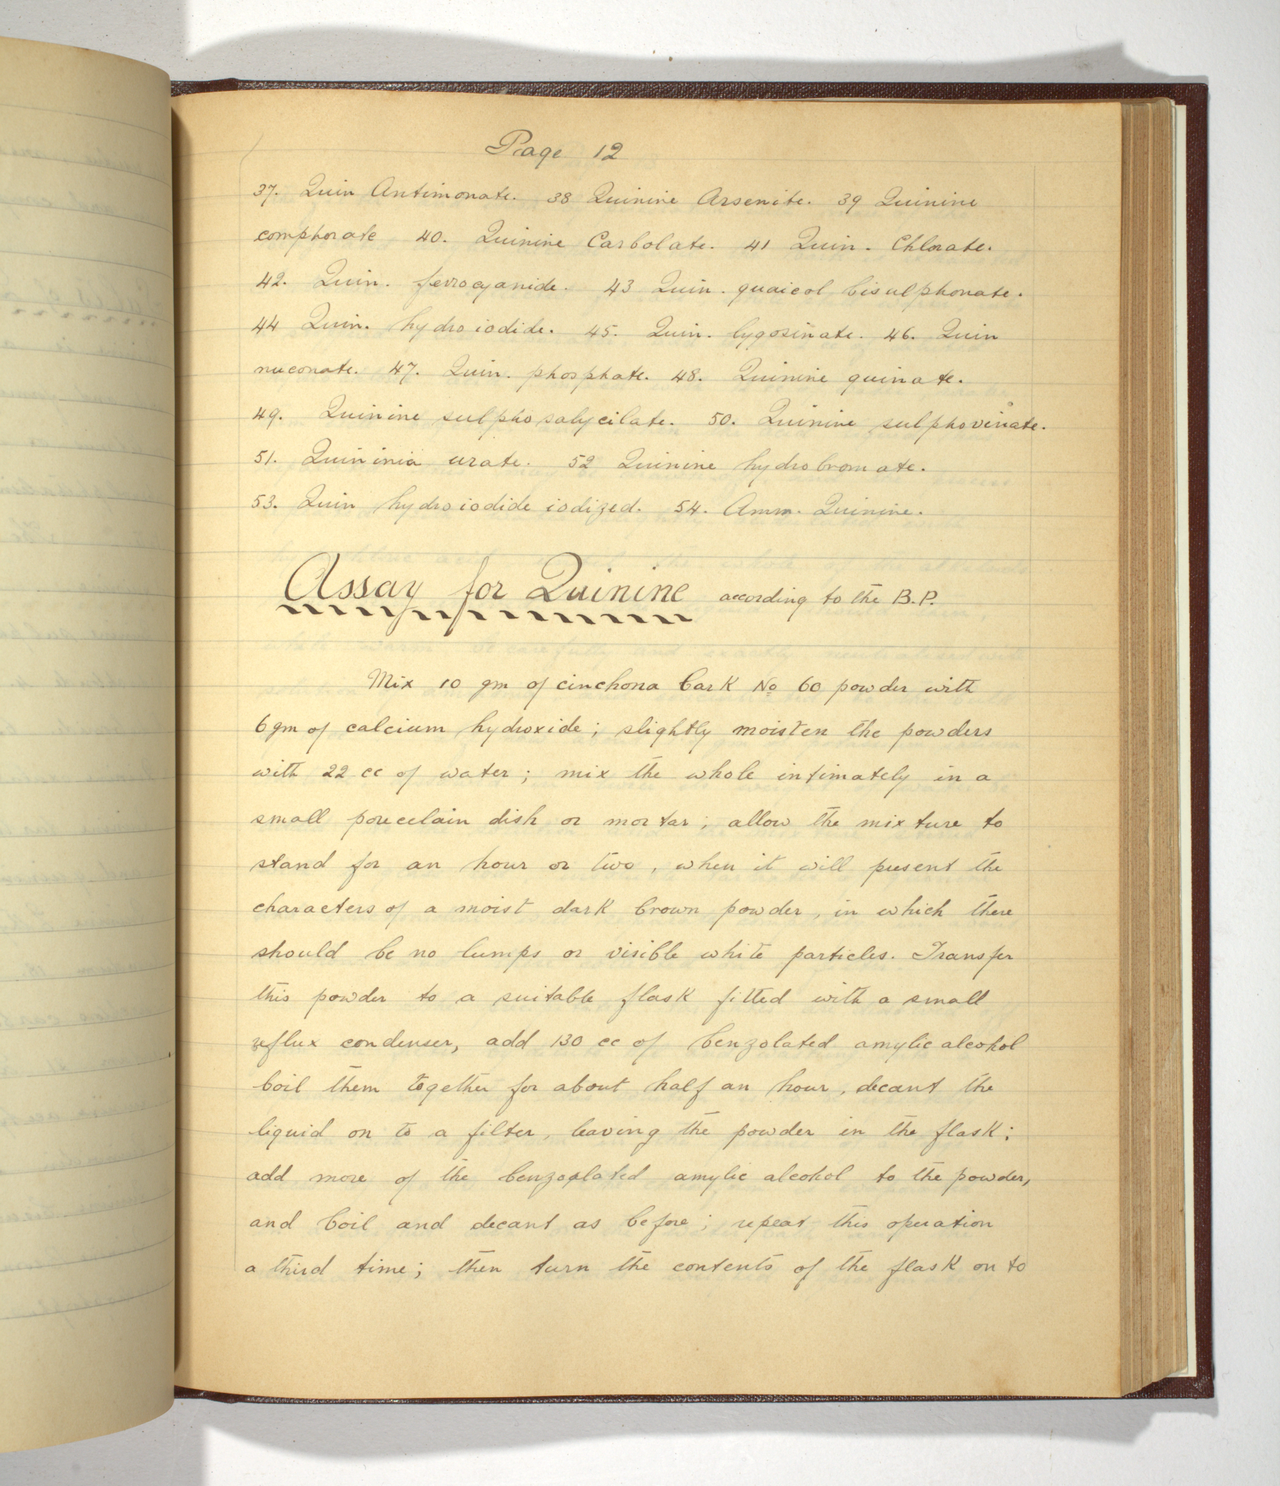 Page 12
37. Quin Antimonate. 38 Quinine Arsenite. 39 Quinine
comphorate 40. Quinine Carbolate. 41 Quin. Chlorate.
42. Quin. ferrocyanide. 43 Quin. guaicol bisulphonate.
44 Quin. hydroiodide. 45. Quin. lygosinate. 46. Quin
nuconate. 47. Quin. phosphate. 48. Quinine quinate.
49. Quinine sulphosalycilate. 50. Quinine sulphovinate.
51. Quininia urate. 52 Quinine hydrobromate.
53. Quin hydroiodide iodized. 54. Amm. Quinine.
Assay for Quinine according to the B.P.
Mix 10 gm of cinchona bark No 60 powder with
6 gm of calcium hydroxide; slightly moisten the powders
with 22 cc of water; mix the whole intimately in a
small porcelain dish or mortar; allow the mixture to
stand for an hour or two, when it will present the
characters of a moist dark brown powder, in which there
should be no lumps or visible white particles. Transfer
this powder to a suitable flask fitted with a small
reflux condenser, add 130 cc of benzolated amylic alcohol
boil them together for about half an hour, decant the
liquid on to a filter, leaving the powder in the flask;
add more of the benzolated amylic alcohol to the powder,
and boil and decant as before; repeat this operation
a third time; then turn the contents of the flask on to